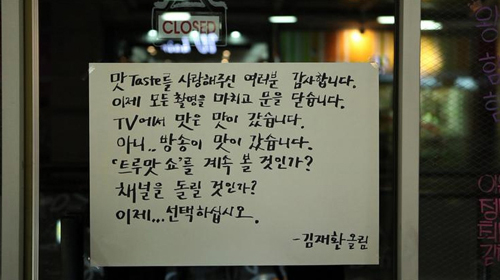 CLOSED
맛 Taste를 사랑해주신 여러분 감사합니다.
이제 모든 촬영을 마치고 문을 닫습니다.
TV에서 맛은 맛이 갔습니다.
아니.. 방송이 맛이 갔습니다.
'트루맛 쇼'를 계속 볼 것인가?
채널을 돌릴 것인가?
이제... 선택하십시오.
-김재환올림